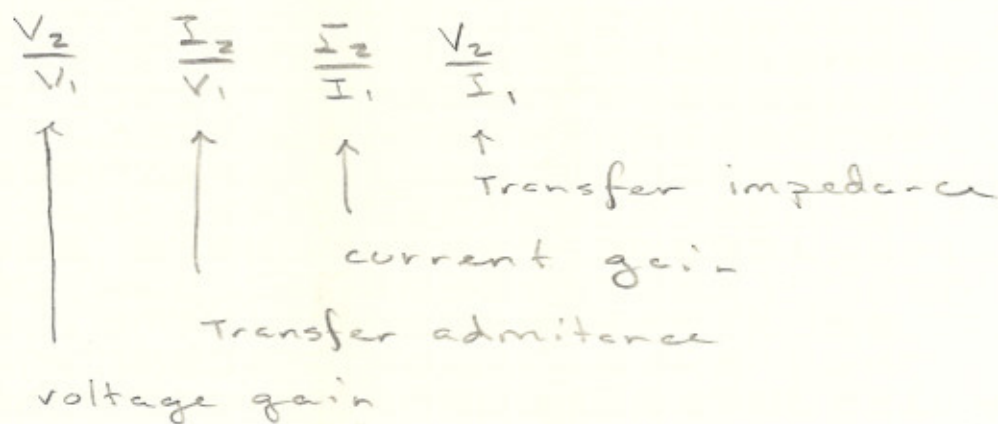 V₂/V₁ I₂/V₁ I₂/I₁ V₂/I₁
Transfer impedance
current gain
Transfer admitance
voltage gain